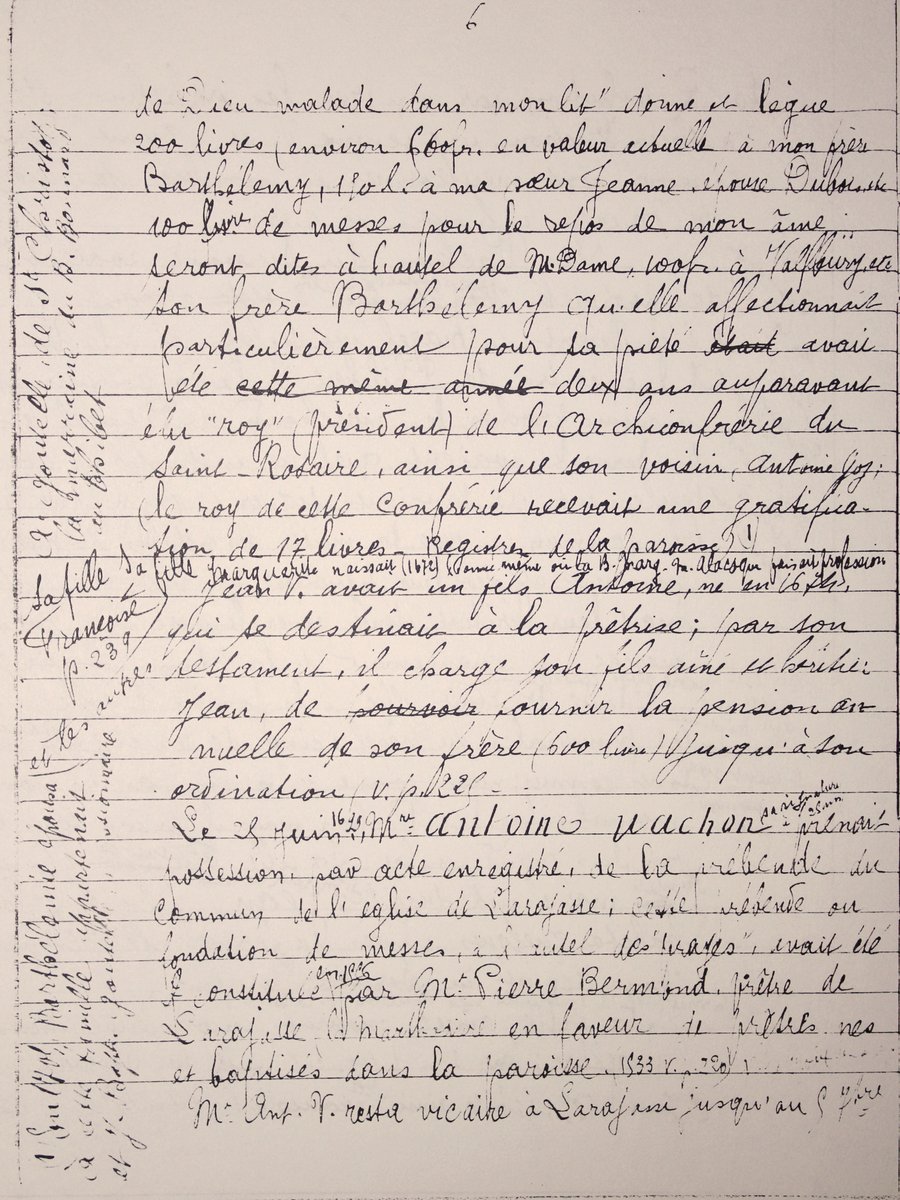 6
de Dieu malade dans mon lit" donne et lègue
200 livres (environ 660fr. en valeur actuelle à mon frère
Barthélemy, à ma sœur Jeanne, épouse Dubois, et
100 livres de messes pour le repos de mon âme
seront dites à l'autel de N. Dame, 100fr. à Valfleury, etc
son frère Barthélemy qu'elle affectionnait
particulièrement pour sa piété était avait
été cette même année deux ans auparavant
élu "roy" (président) de l'Archiconfrérie du
Saint-Rosaire, ainsi que son voisin, Antoine
(le roy de cette Confrérie recevait une gratifica-
tion de 17 livres - Registres de la paroisse) 1)
Sa fille Marguerite naissait (1672), année même où la B. Marg. M. Alacoque faisait profession
Jean V. avait un fils Antoine, né en
qui se destinait à la prêtrise; par son
testament, il charge son fils aîné et héritier
Jean, de pourvoir fournir la pension an
nuelle de son frère (600 livres) jusqu'à son
ordination (v. p. 225 -
Le 25 Juin 1679, Mre Antoine Vachon prenait
possession, par acte enregistré, de la prébende du
commun de l'église de Larajasse; cette prébende ou
fondation de messes, à l'autel des avait été
constituée par Mr Pierre Bermond, prêtre de
Larajasse en faveur de prêtres nés
et baptisés dans la paroisse. (1533 v. p. 220)
Mr Ant. V. resta vicaire à Larajasse jusqu'au 5 7bre
Sa fille
Françoise
p. 239
et les autres
1) En Barthélemie épousa
à cette famille appartenait
et J. Bapt. missionnaire
Gonelle de St Christot,
la marraine du B. Bonnard
au Thibet